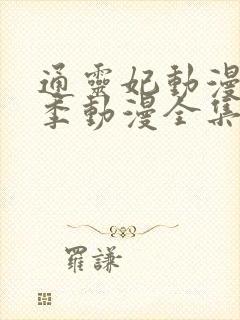 通靈妃動漫
季動漫全集
羅謙